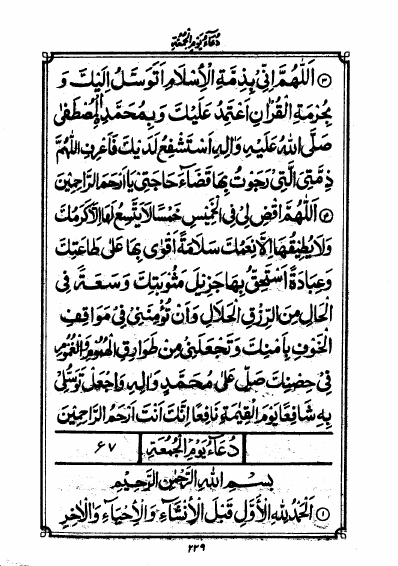 دُعَاءُ یَوْمِ الْجُمُعَةِ
③ اَللّٰهُمَّ اِنِّیْ بِذِمَّةِ الْاِسْلَامِ اَتَوَسَّلُ اِلَیْكَ وَ
بِحُرْمَةِ الْقُرْاٰنِ اَعْتَمِدُ عَلَیْكَ وَبِمُحَمَّدِ ۣالْمُصْطَفٰی
صَلَّی اللّٰهُ عَلَیْهِ وَاٰلِهٖ اَسْتَشْفِعُ لَدَیْكَ فَاعْرِفِ اللّٰهُمَّ
ذِمَّتِیَ الَّتِیْ رَجَوْتُ بِهَا قَضَآءَ حَاجَتِیْ یَا اَرْحَمَ الرَّاحِمِیْنَ
④ اَللّٰهُمَّ اقْضِ لِیْ فِی الْخَمِیْسِ خَمْسًا لَا یَتَّسِعُ لَهَا اِلَّا كَرَمُكَ
وَلَا یُطِیْقُهَا اِلَّا نِعَمُكَ سَلَامَةً اَقْوٰی بِهَا عَلٰی طَاعَتِكَ
وَعِبَادَةً اَسْتَحِقُّ بِهَا جَزِیْلَ مَثُوْبَتِكَ وَسَعَةً فِی
الْحَالِ مِنَ الرِّزْقِ الْحَلَالِ وَاَنْ تُؤْمِنَنِیْ فِیْ مَوَاقِفِ
الْخَوْفِ بِاَمْنِكَ وَتَجْعَلَنِیْ مِنْ طَوَارِقِ الْهُمُوْمِ وَالْغُمُوْمِ
فِیْ حِصْنِكَ صَلِّ عَلٰی مُحَمَّدٍ وَاٰلِهٖ وَاجْعَلْ تَوَسُّلِیْ
بِهٖ شَافِعًا یَوْمَ الْقِیٰمَةِ نَافِعًا اِنَّكَ اَنْتَ اَرْحَمُ الرَّاحِمِیْنَ
دُعَاءُ یَوْمِ الْجُمُعَةِ ۶۷
بِسْمِ اللّٰهِ الرَّحْمٰنِ الرَّحِیْمِ
① اَلْحَمْدُ لِلّٰهِ الْاَوَّلِ قَبْلَ الْاِنْشَآءِ وَالْاِحْیَآءِ وَالْاٰخِرِ
۲۲۹